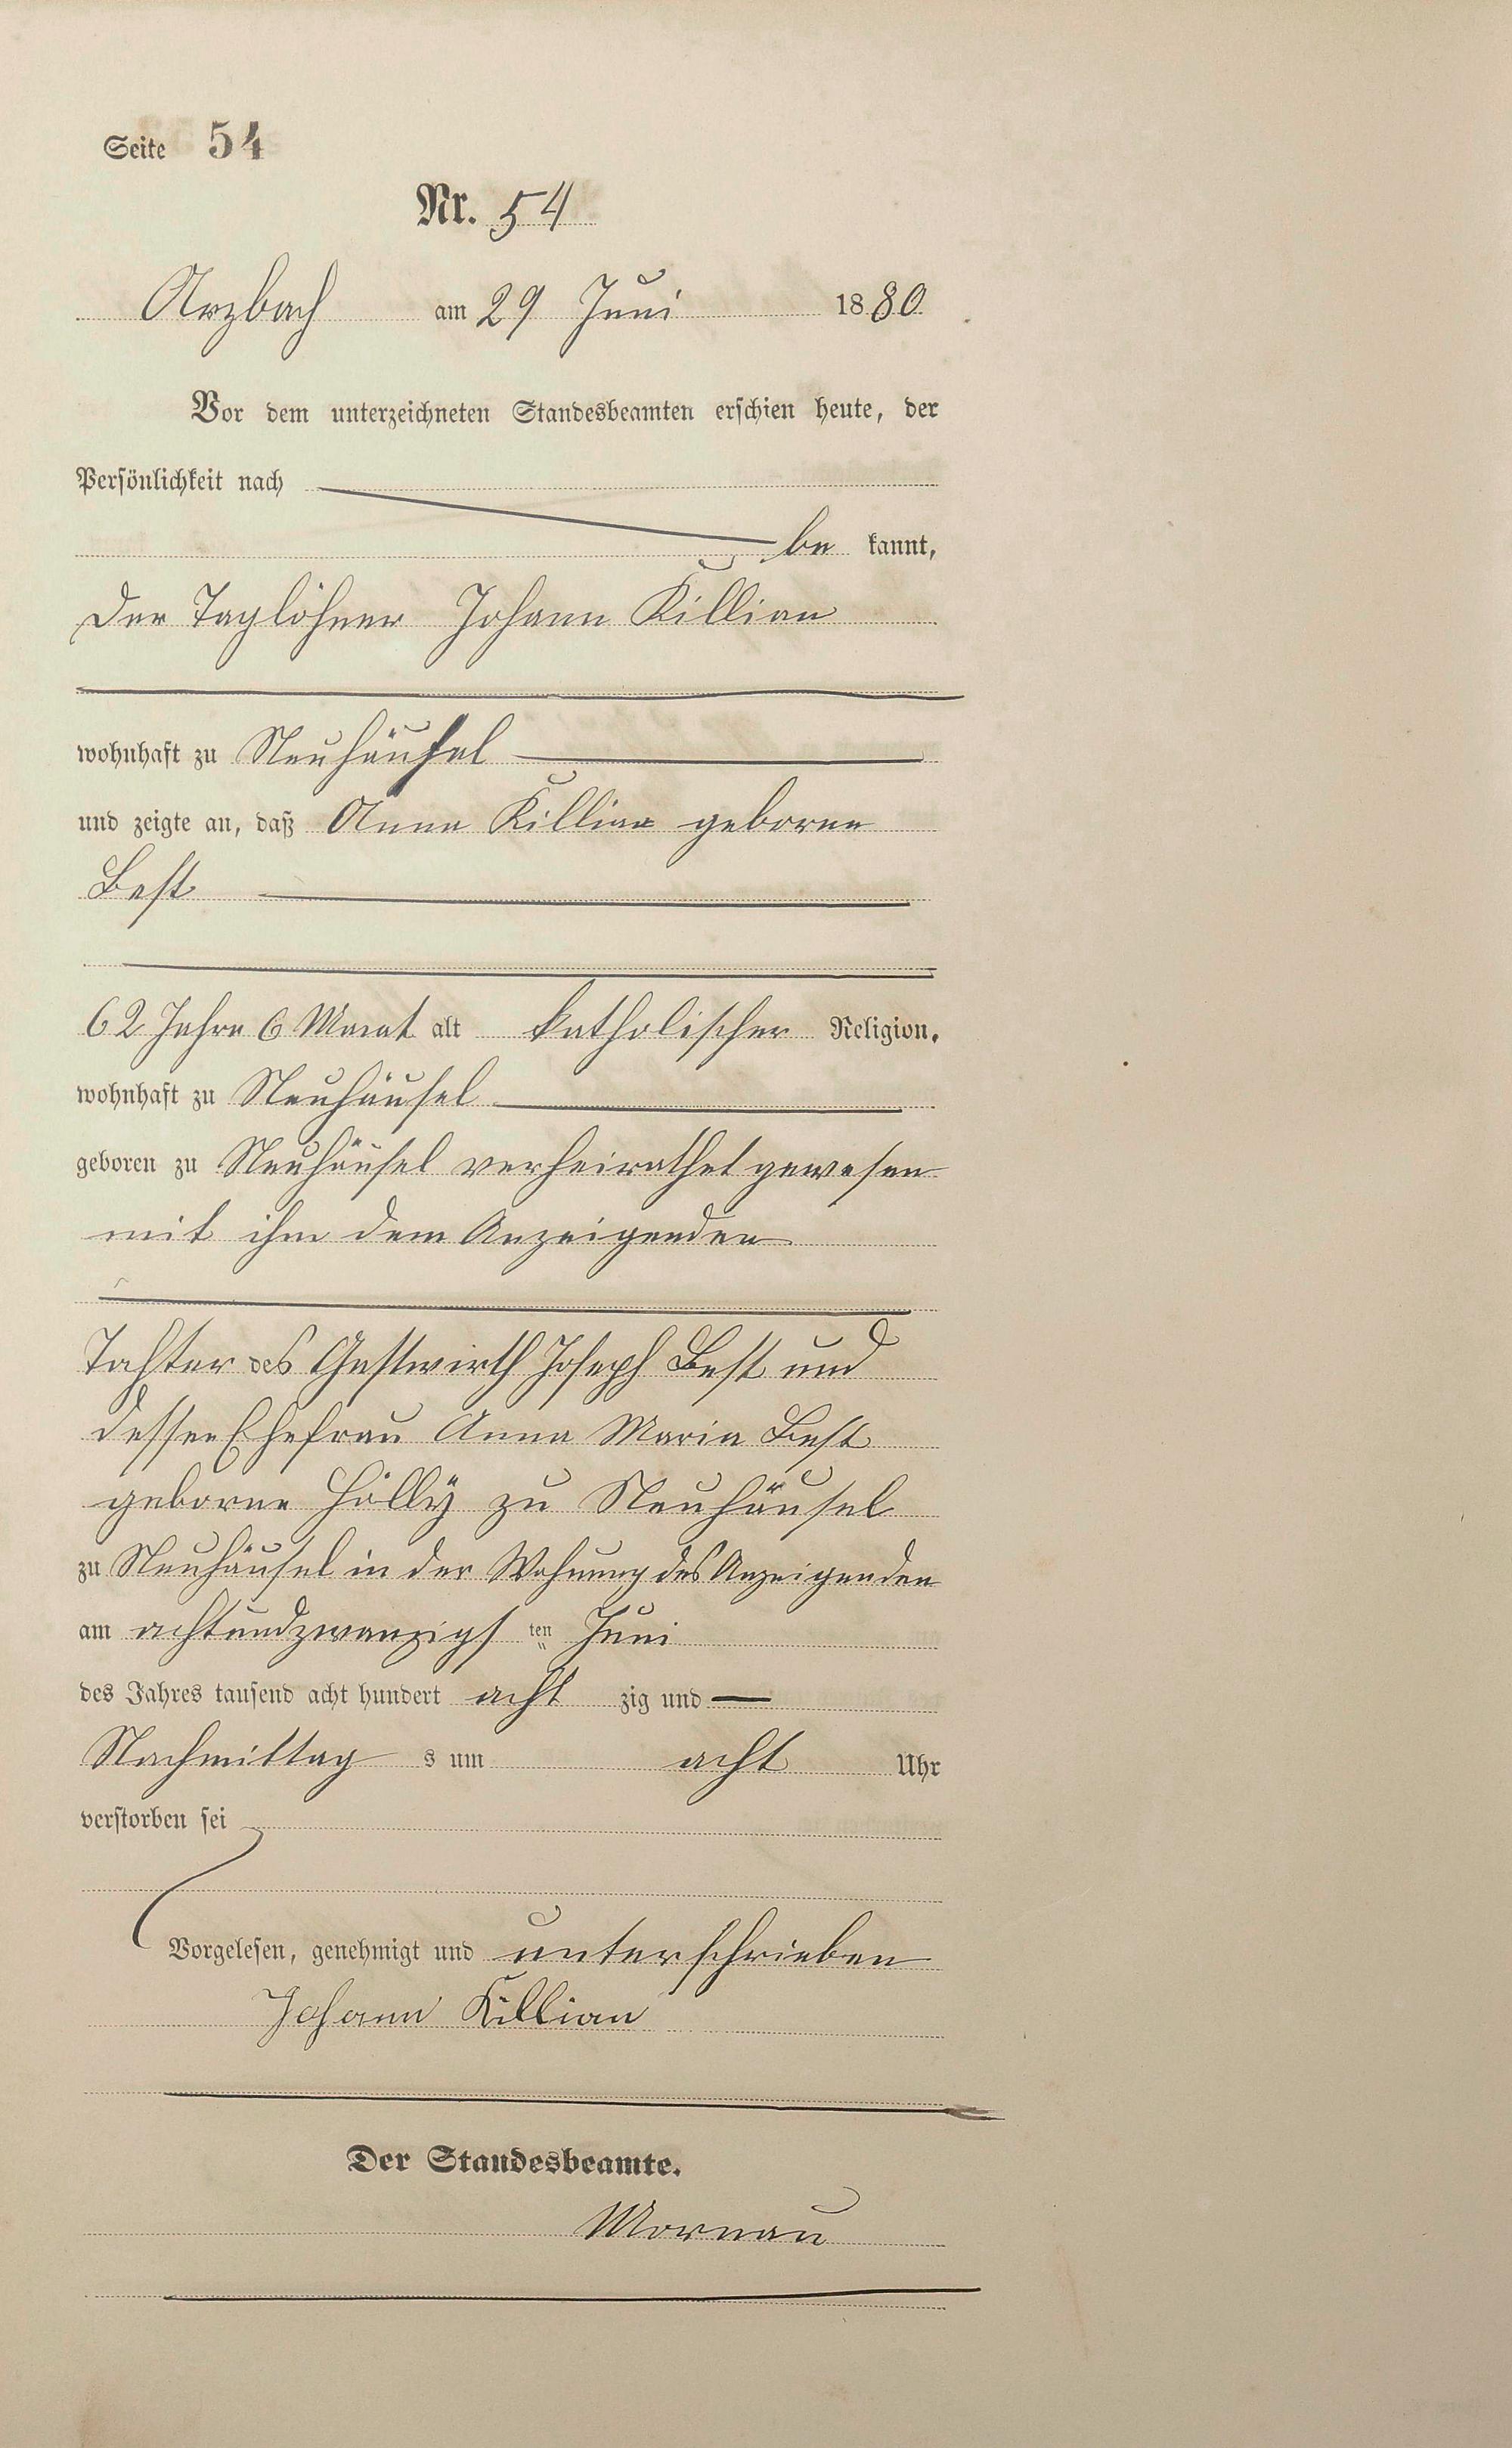 Seite 54
Nr. 54
Arzbach am 29 Juni 1880
Vor dem unterzeichneten Standesbeamten erschien heute, der
Persönlichkeit nach
be kannt,
Der Taglöhner Johann Killian
wohnhaft zu Neuhäusel
und zeigte an, daß Anna Killian geborne
Best
62 Jahre 6 Monat alt katholischer Religion,
wohnhaft zu Neuhäusel
geboren zu Neuhäusel verheirathet gewesen
mit ihm dem Anzeigenden
Tochter des Gastwirth Joseph Best und
dessen Ehefrau Anna Maria Best
geborne Hölly zu Neuhäusel
zu Neuhäusel in der Wohnung des Anzeigenden
am achtundzwanzigs ten Juni
des Jahres tausend acht hundert acht zig und
Nachmittag s um acht Uhr
verstorben sei
Vorgelesen, genehmigt und unterschrieben
Johann Killian
Der Standesbeamte.
Mornau